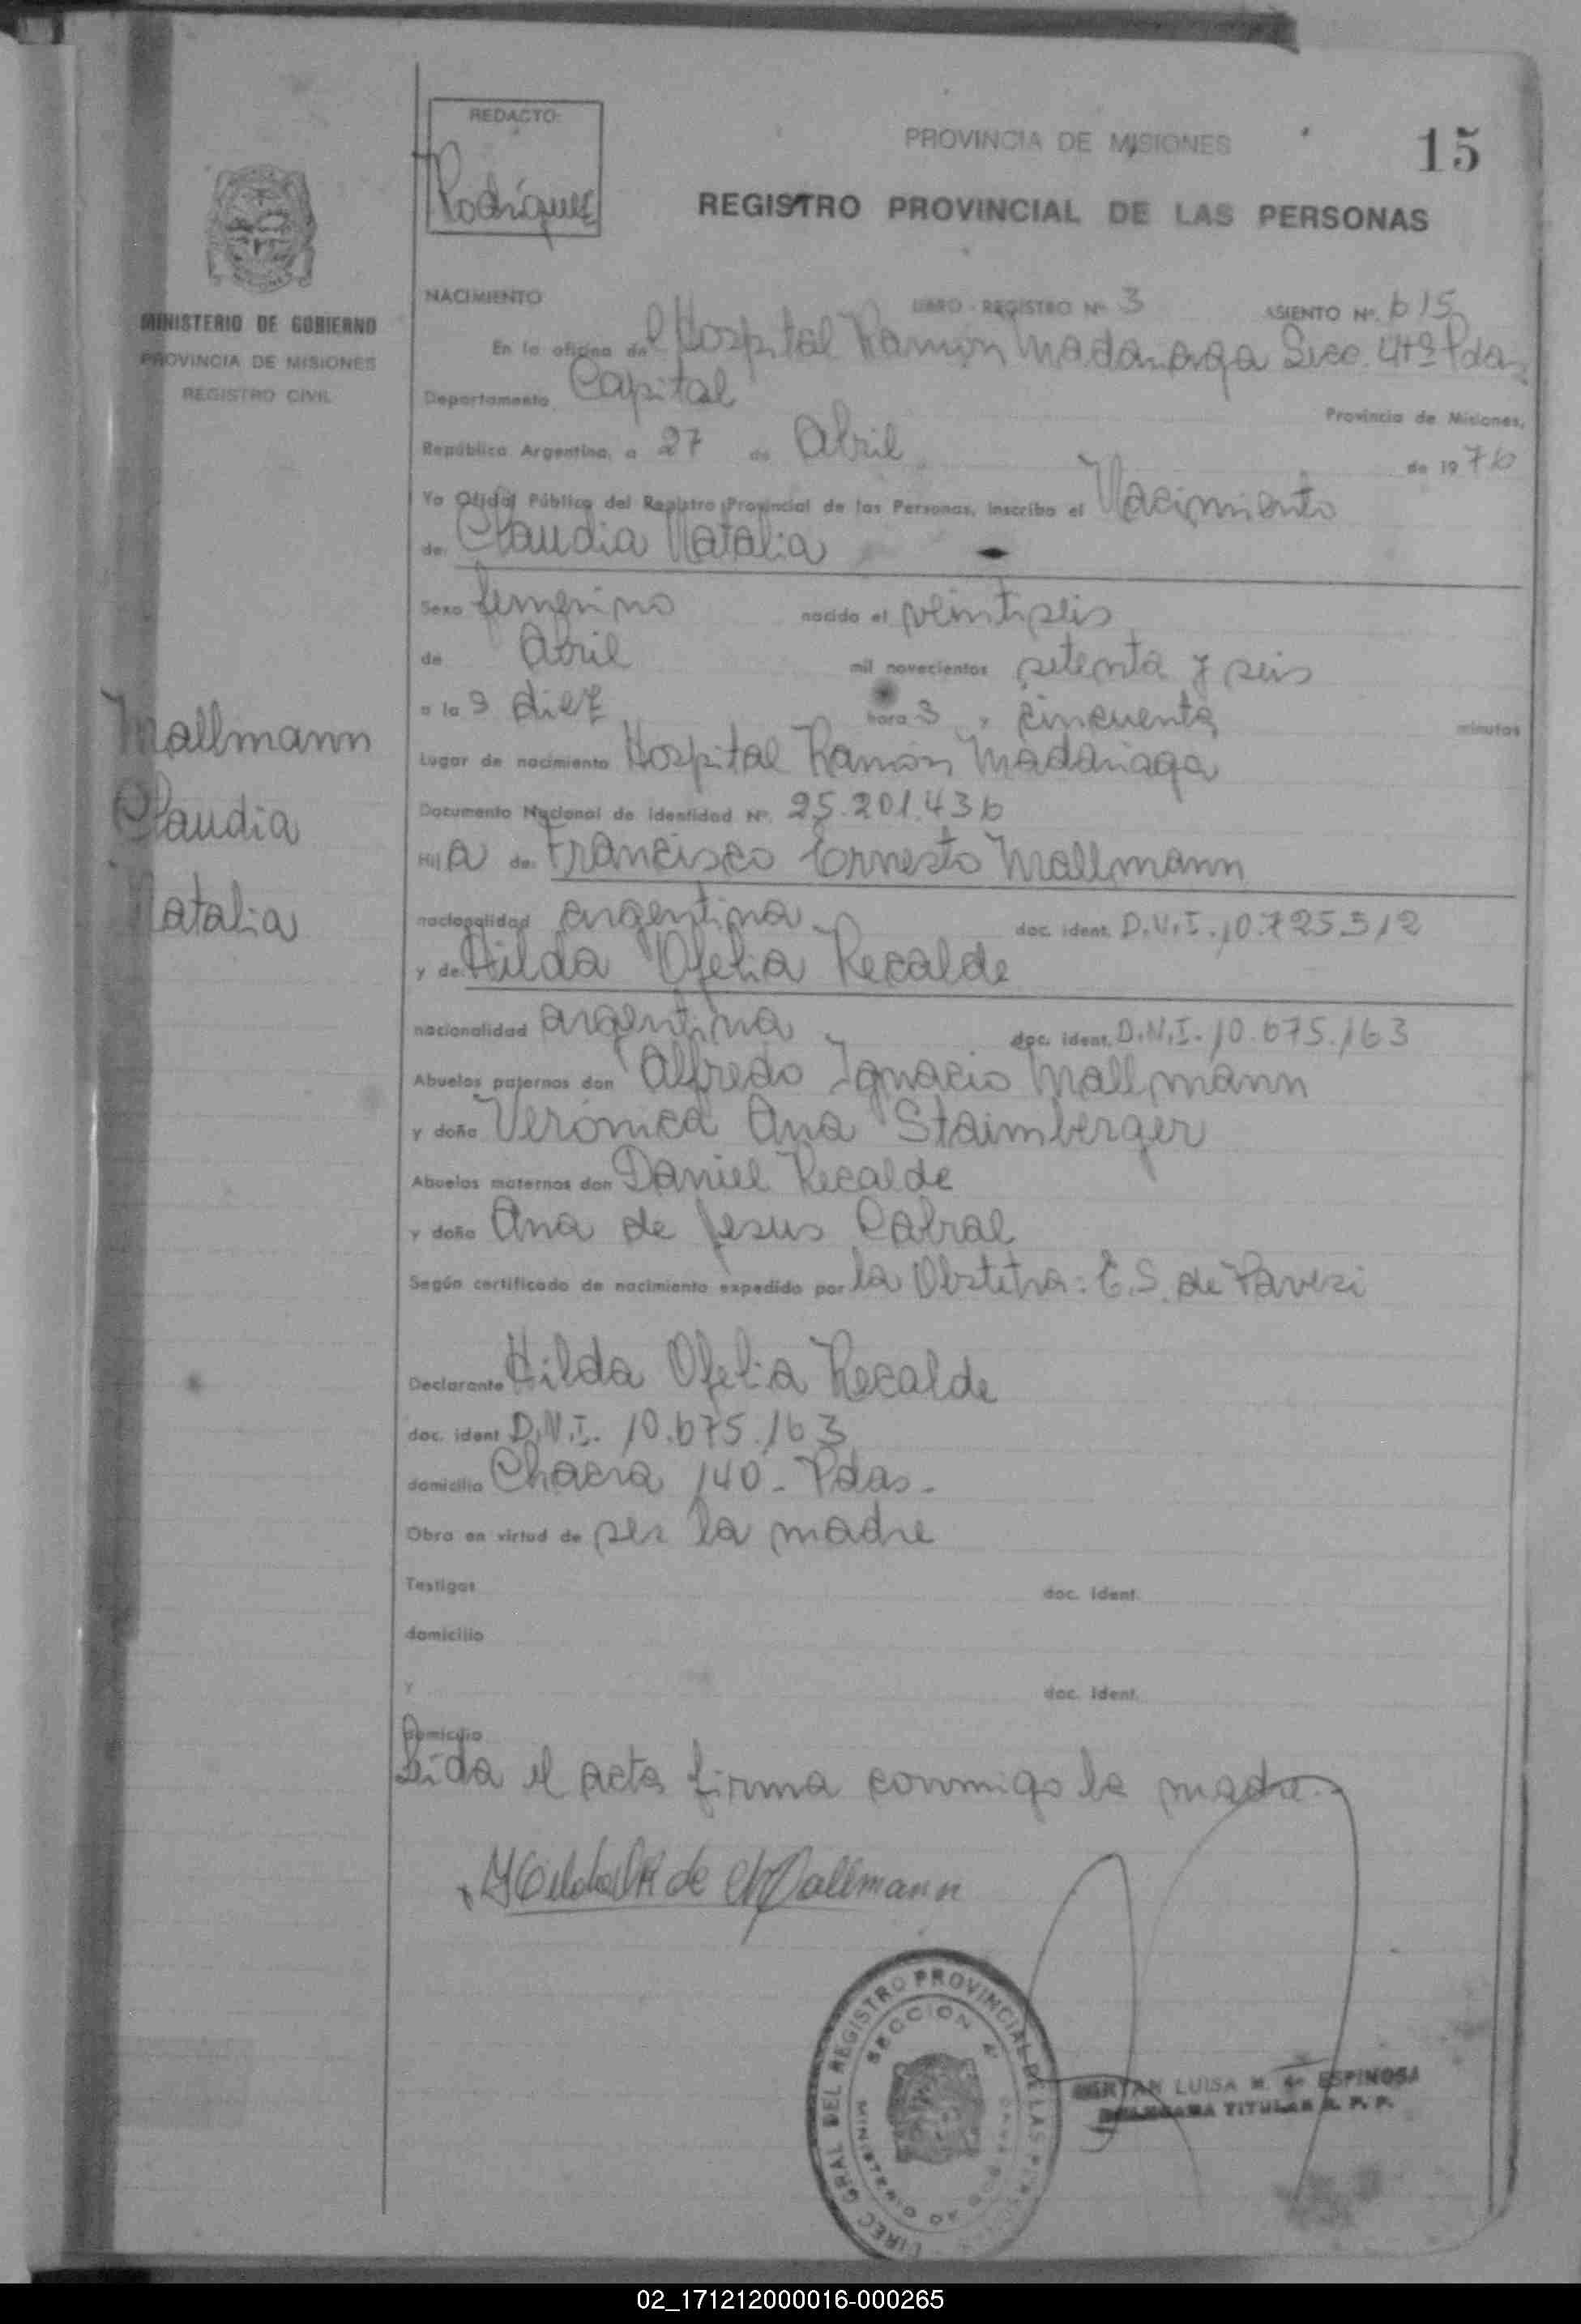 REDACTO:
Rodríguez
PROVINCIA DE MISIONES
15
REGISTRO PROVINCIAL DE LAS PERSONAS
MINISTERIO DE GOBIERNO
PROVINCIA DE MISIONES
REGISTRO CIVIL
NACIMIENTO LIBRO - REGISTRO Nº 3 ASIENTO Nº. 615
En la oficina del Hospital Ramón Madariaga Secc. 4ta Pdas.
Departamento Capital Provincia de Misiones,
República Argentina, a 27 de Abril de 1976
Yo Oficial Público del Registro Provincial de las Personas, inscribo el Nacimiento
de: Claudia Natalia
Sexo femenino nacido el veintiseis
de Abril mil novecientos setenta y seis
a las diez horas y cincuenta minutos
Mallmann
Claudia
Natalia
Lugar de nacimiento Hospital Ramón Madariaga
Documento Nacional de Identidad Nº. 25.201.436
Hija de: Francisco Ernesto Mallmann
nacionalidad argentina. doc. ident. D.N.I. 10.725.512
y de: Hilda Ofelia Recalde
nacionalidad argentina. doc. ident. D.N.I. 10.675.163
Abuelos paternos don Alfredo Ignacio Mallmann
y doña Verónica Ana Staimberger
Abuelos maternos don Daniel Recalde
y doña Ana de Jesus Cabral
Según certificado de nacimiento expedido por la Obstetra: E.S. de Pavesi
Declarante Hilda Ofelia Recalde
doc. ident D.N.I. 10.675.163
domicilio Chacra 140 - Pdas.-
Obra en virtud de ser la madre
Testigos doc. ident.
domicilio
y doc. ident.
domicilio
Leida el acta firma conmigo la madre.-
de Mallmann
DIREC. GRAL DEL REGISTRO PROVINCIAL DE LAS PERSONAS
SECCION 4ª
MINISTERIO DE GOBIERNO
LUISA M. de ESPINOSA
TITULAR R. P. P.
02_171212000016-000265